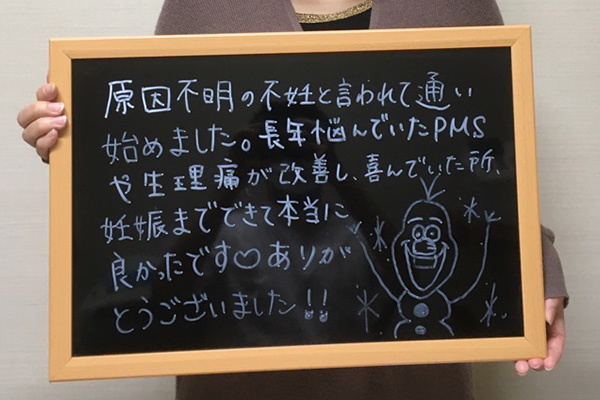 原因不明の不妊と言われて通い
始めました。長年悩んでいたPMS
や生理痛が改善し、喜んでいた所、
妊娠までできて本当に
良かったです♡ありが
とうございました!!